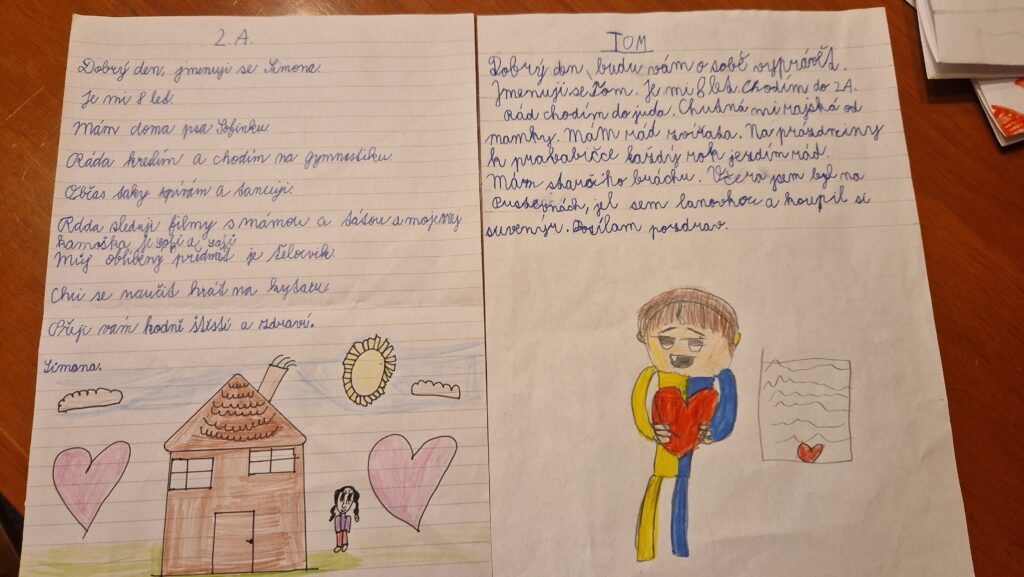 2. A.
Dobrý den, jmenuji se Simona.
Je mi 8 let.
Mám doma psa Sofinku.
Ráda kreslím a chodím na gymnastiku.
Občas taky zpívám a tancuji.
Ráda sleduji filmy s mámou a tátou a moje nej
kamoška je a
Můj oblíbený předmět je tělocvik.
Chci se naučit hrát na kytaru.
Přeji vám hodně štěstí a zdraví.
Simona.
TOM
Dobrý den, budu vám o sobě vyprávět.
Jmenuji se Tom. Je mi 8 let. Chodím do 2A.
Rád chodím do juda. Chutná mi rajská od
mamky. Mám rád zvířata. Na prázdniny
k prababičce každý rok jezdím rád.
Mám staršího bráchu. Včera jsem byl na
Pustevnách, jel sem lanovkou a koupil si
suvenýr. Posílam pozdrav.